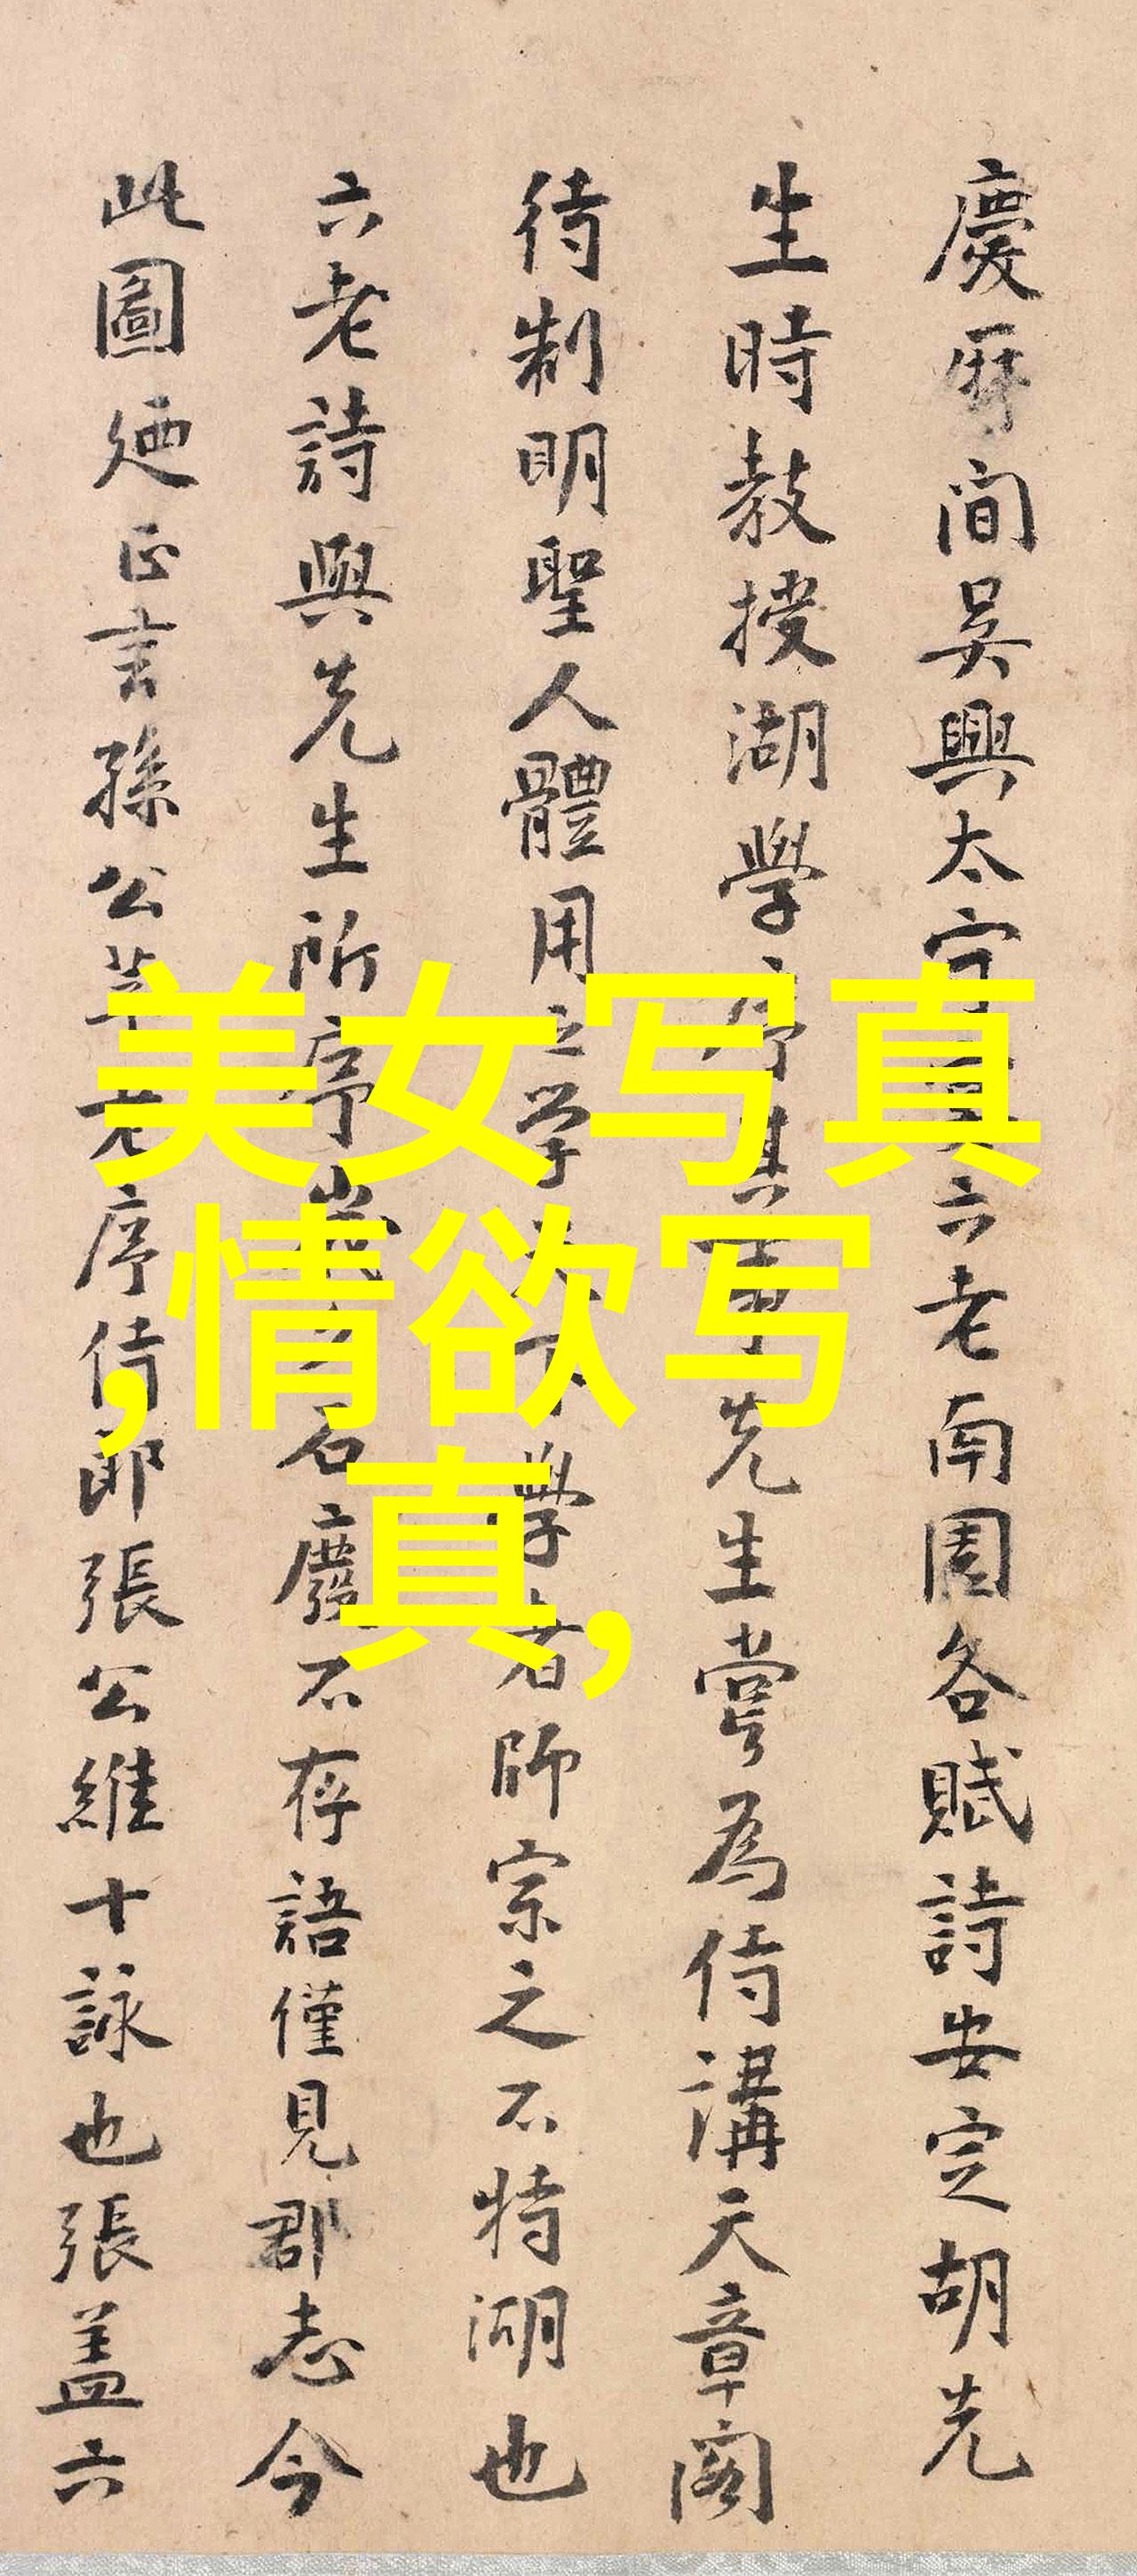 慶曆間吳興太守六老南園各賦詩安定胡先
生時教授湖學序其事先生嘗為侍講天章閣
待制明聖人體用之學學者師宗之不特湖也
六老詩與先生所序歲石廢不存語僅見郡志今
此圖廼正言孫公莘老序侍郎張公維十詠也張蓋六
美女写真
,情欲写
真,